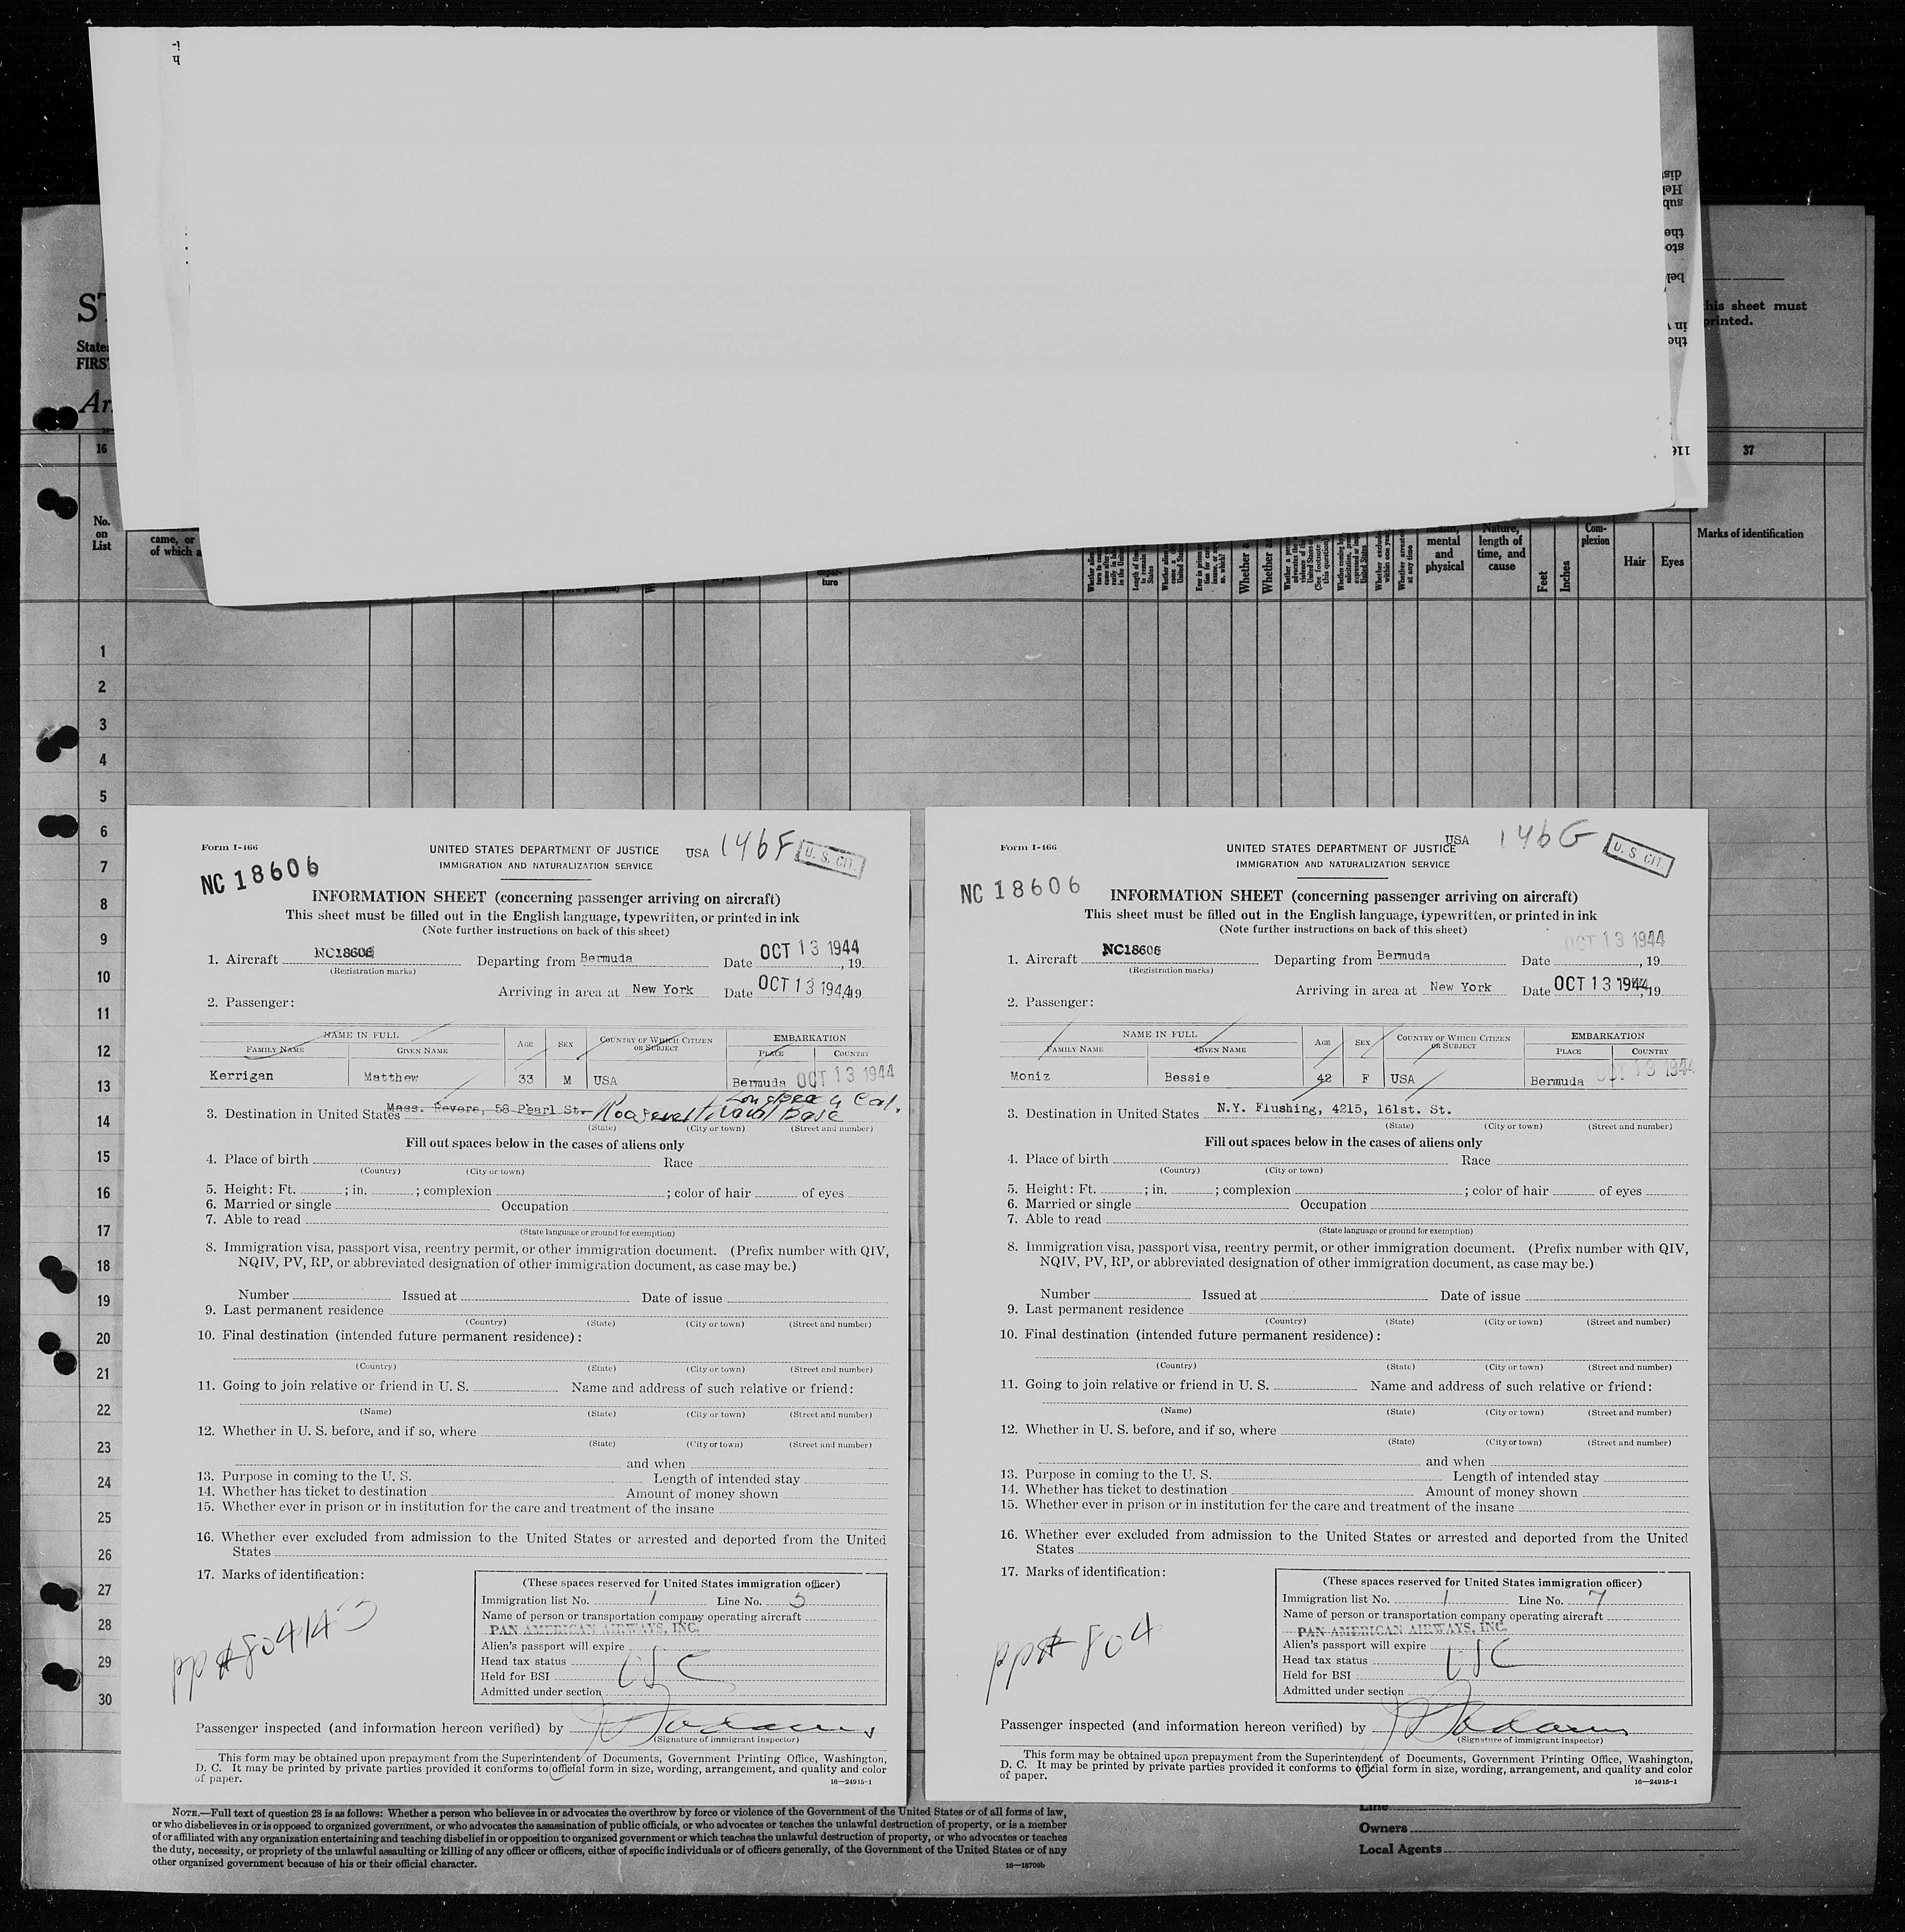 ST
this sheet must
printed.
States
FIRS
Ar
16
37
No.
on
List
came, or
of which a
depar-
ture
Whether a
Whether a
mental
and
physical
Nature,
length of
time, and
cause
Feet
Inches
Com-
plexion
Hair
Eyes
Marks of identification
1
2
3
4
5
6
7
8
9
10
11
12
13
14
15
16
17
18
19
20
21
22
23
24
25
26
27
28
29
30
Form I-466
UNITED STATES DEPARTMENT OF JUSTICE USA 146F U. S. CIT.
IMMIGRATION AND NATURALIZATION SERVICE
NC 18606
INFORMATION SHEET (concerning passenger arriving on aircraft)
This sheet must be filled out in the English language, typewritten, or printed in ink
(Note further instructions on back of this sheet)
1. Aircraft NC18606 Departing from Bermuda Date OCT 13 1944, 19
(Registration marks)
Arriving in area at New York Date OCT 13 1944, 19
2. Passenger:
NAME IN FULL
FAMILY NAME GIVEN NAME AGE SEX COUNTRY OF WHICH CITIZEN OR SUBJECT EMBARKATION
PLACE COUNTRY
Kerrigan Matthew 33 M USA Bermuda OCT 13 1944
Long Beach Cal.
3. Destination in United States Mass. Revere, 58 Pearl St. Roosevelt Naval Base
(State) (City or town) (Street and number)
Fill out spaces below in the cases of aliens only
4. Place of birth Race
(Country) (City or town)
5. Height: Ft. ; in. ; complexion ; color of hair of eyes
6. Married or single Occupation
7. Able to read
(State language or ground for exemption)
8. Immigration visa, passport visa, reentry permit, or other immigration document. (Prefix number with QIV,
NQIV, PV, RP, or abbreviated designation of other immigration document, as case may be.)
Number Issued at Date of issue
9. Last permanent residence
(Country) (State) (City or town) (Street and number)
10. Final destination (intended future permanent residence):
(Country) (State) (City or town) (Street and number)
11. Going to join relative or friend in U. S. Name and address of such relative or friend:
(Name) (State) (City or town) (Street and number)
12. Whether in U. S. before, and if so, where
(State) (City or town) (Street and number)
and when
13. Purpose in coming to the U. S. Length of intended stay
14. Whether has ticket to destination Amount of money shown
15. Whether ever in prison or in institution for the care and treatment of the insane
16. Whether ever excluded from admission to the United States or arrested and deported from the United
States
17. Marks of identification:
pp# 804143
(These spaces reserved for United States immigration officer)
Immigration list No. 1 Line No. 5
Name of person or transportation company operating aircraft
PAN AMERICAN AIRWAYS, INC.
Alien's passport will expire
Head tax status USC
Held for BSI
Admitted under section
Passenger inspected (and information hereon verified) by
(Signature of immigrant inspector)
This form may be obtained upon prepayment from the Superintendent of Documents, Government Printing Office, Washington,
D. C. It may be printed by private parties provided it conforms to official form in size, wording, arrangement, and quality and color
of paper. 16—24915-1
Form I-466
UNITED STATES DEPARTMENT OF JUSTICE USA 146G U. S CIT.
IMMIGRATION AND NATURALIZATION SERVICE
NC 18606
INFORMATION SHEET (concerning passenger arriving on aircraft)
This sheet must be filled out in the English language, typewritten, or printed in ink
(Note further instructions on back of this sheet)
1. Aircraft NC18606 Departing from Bermuda Date OCT 13 1944, 19
(Registration marks)
Arriving in area at New York Date OCT 13 1944, 19
2. Passenger:
NAME IN FULL
FAMILY NAME GIVEN NAME AGE SEX COUNTRY OF WHICH CITIZEN OR SUBJECT EMBARKATION
PLACE COUNTRY
Moniz Bessie 42 F USA Bermuda OCT 13 1944
3. Destination in United States N.Y. Flushing, 4215, 161st. St.
(State) (City or town) (Street and number)
Fill out spaces below in the cases of aliens only
4. Place of birth Race
(Country) (City or town)
5. Height: Ft. ; in. ; complexion ; color of hair of eyes
6. Married or single Occupation
7. Able to read
(State language or ground for exemption)
8. Immigration visa, passport visa, reentry permit, or other immigration document. (Prefix number with QIV,
NQIV, PV, RP, or abbreviated designation of other immigration document, as case may be.)
Number Issued at Date of issue
9. Last permanent residence
(Country) (State) (City or town) (Street and number)
10. Final destination (intended future permanent residence):
(Country) (State) (City or town) (Street and number)
11. Going to join relative or friend in U. S. Name and address of such relative or friend:
(Name) (State) (City or town) (Street and number)
12. Whether in U. S. before, and if so, where
(State) (City or town) (Street and number)
and when
13. Purpose in coming to the U. S. Length of intended stay
14. Whether has ticket to destination Amount of money shown
15. Whether ever in prison or in institution for the care and treatment of the insane
16. Whether ever excluded from admission to the United States or arrested and deported from the United
States
17. Marks of identification:
pp# 804
(These spaces reserved for United States immigration officer)
Immigration list No. 1 Line No. 7
Name of person or transportation company operating aircraft
PAN AMERICAN AIRWAYS, INC.
Alien's passport will expire
Head tax status USC
Held for BSI
Admitted under section
Passenger inspected (and information hereon verified) by
(Signature of immigrant inspector)
This form may be obtained upon prepayment from the Superintendent of Documents, Government Printing Office, Washington,
D. C. It may be printed by private parties provided it conforms to official form in size, wording, arrangement, and quality and color
of paper. 16—24915-1
NOTE.—Full text of question 28 is as follows: Whether a person who believes in or advocates the overthrow by force or violence of the Government of the United States or of all forms of law,
or who disbelieves in or is opposed to organized government, or who advocates the assassination of public officials, or who advocates or teaches the unlawful destruction of property, or is a member
of or affiliated with any organization entertaining and teaching disbelief in or opposition to organized government or which teaches the unlawful destruction of property, or who advocates or teaches
the duty, necessity, or propriety of the unlawful assaulting or killing of any officer or officers, either of specific individuals or of officers generally, of the Government of the United States or of any
other organized government because of his or their official character. 16—18709b
Line
Owners
Local Agents